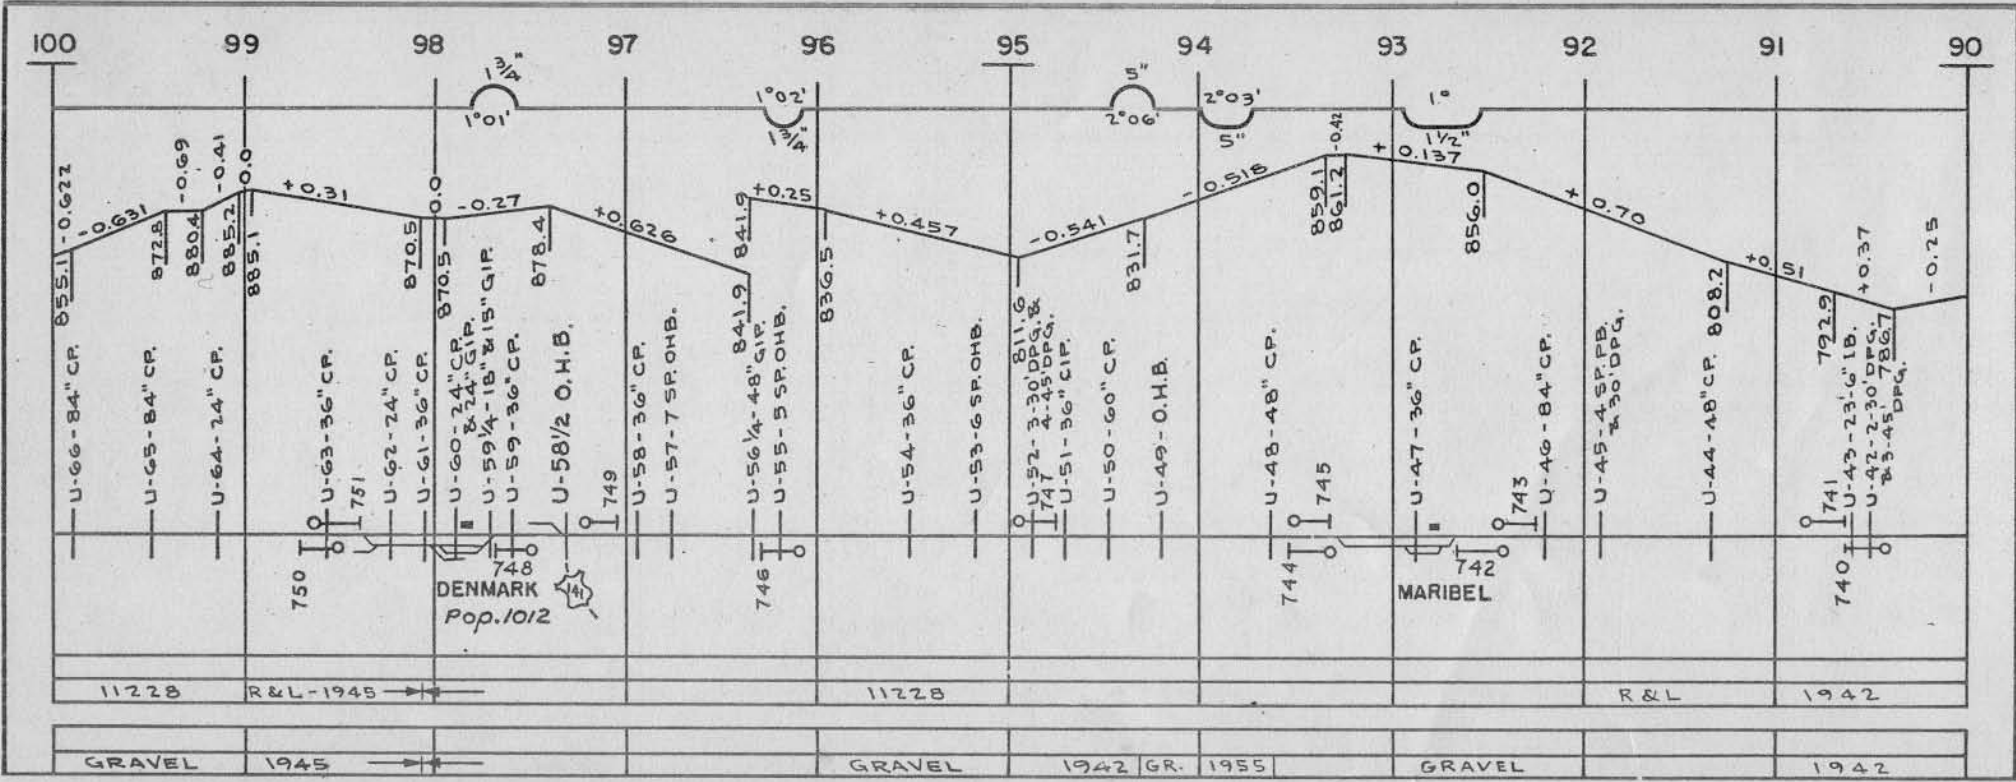 100 99 98 97 96 95 94 93 92 91 90
1 3/4"
1°01'
1°02'
1 3/4"
5"
2°06'
2°03'
5"
1.°
1 1/2"
-0.622
-0.631
-0.69
-0.41
0.0
+0.31
0.0
-0.27
+0.626
+0.25
+0.457
-0.541
-0.518
-0.42
+ 0.137
+ 0.70
+0.51
+0.37
-0.25
855.1
872.8
880.4
885.2
885.1
870.5
870.5
878.4
841.9
841.9
836.5
811.6
831.7
859.1
861.2
856.0
808.2
792.9
786.7
U-66-84" CP.
U-65-84" CP.
U-64-24" CP.
U-63-36" CP.
751
U-62-24" CP.
U-61-36" CP.
U-60-24" CP.
& 24" GIP.
U-59 1/4-18" & 15" GIP.
U-59-36" CP.
U-58 1/2 O.H.B.
749
U-58-36" CP.
U-57-7 SP. OHB.
U-56 1/4-48" GIP.
U-55-5 SP. OHB.
U-54-36" CP.
U-53-6 SP. OHB.
U-52-3-30' DPG. &
4-45' DPG.
747
U-51-36" CIP.
U-50-60" CP.
U-49-O.H.B.
U-48-48" CP.
745
U-47-36" CP.
743
U-46-84" CP.
U-45-4 SP. PB.
& 30' DPG.
U-44-48" CP.
741
U-43-23'-6" IB.
U-42-2-30' DPG.
& 3-45'
DPG.
750
748
746
744
742
740
DENMARK
Pop. 1012
141
MARIBEL
11228 R & L - 1945 11228 R & L 1942
GRAVEL 1945 GRAVEL 1942 GR. 1955 GRAVEL 1942